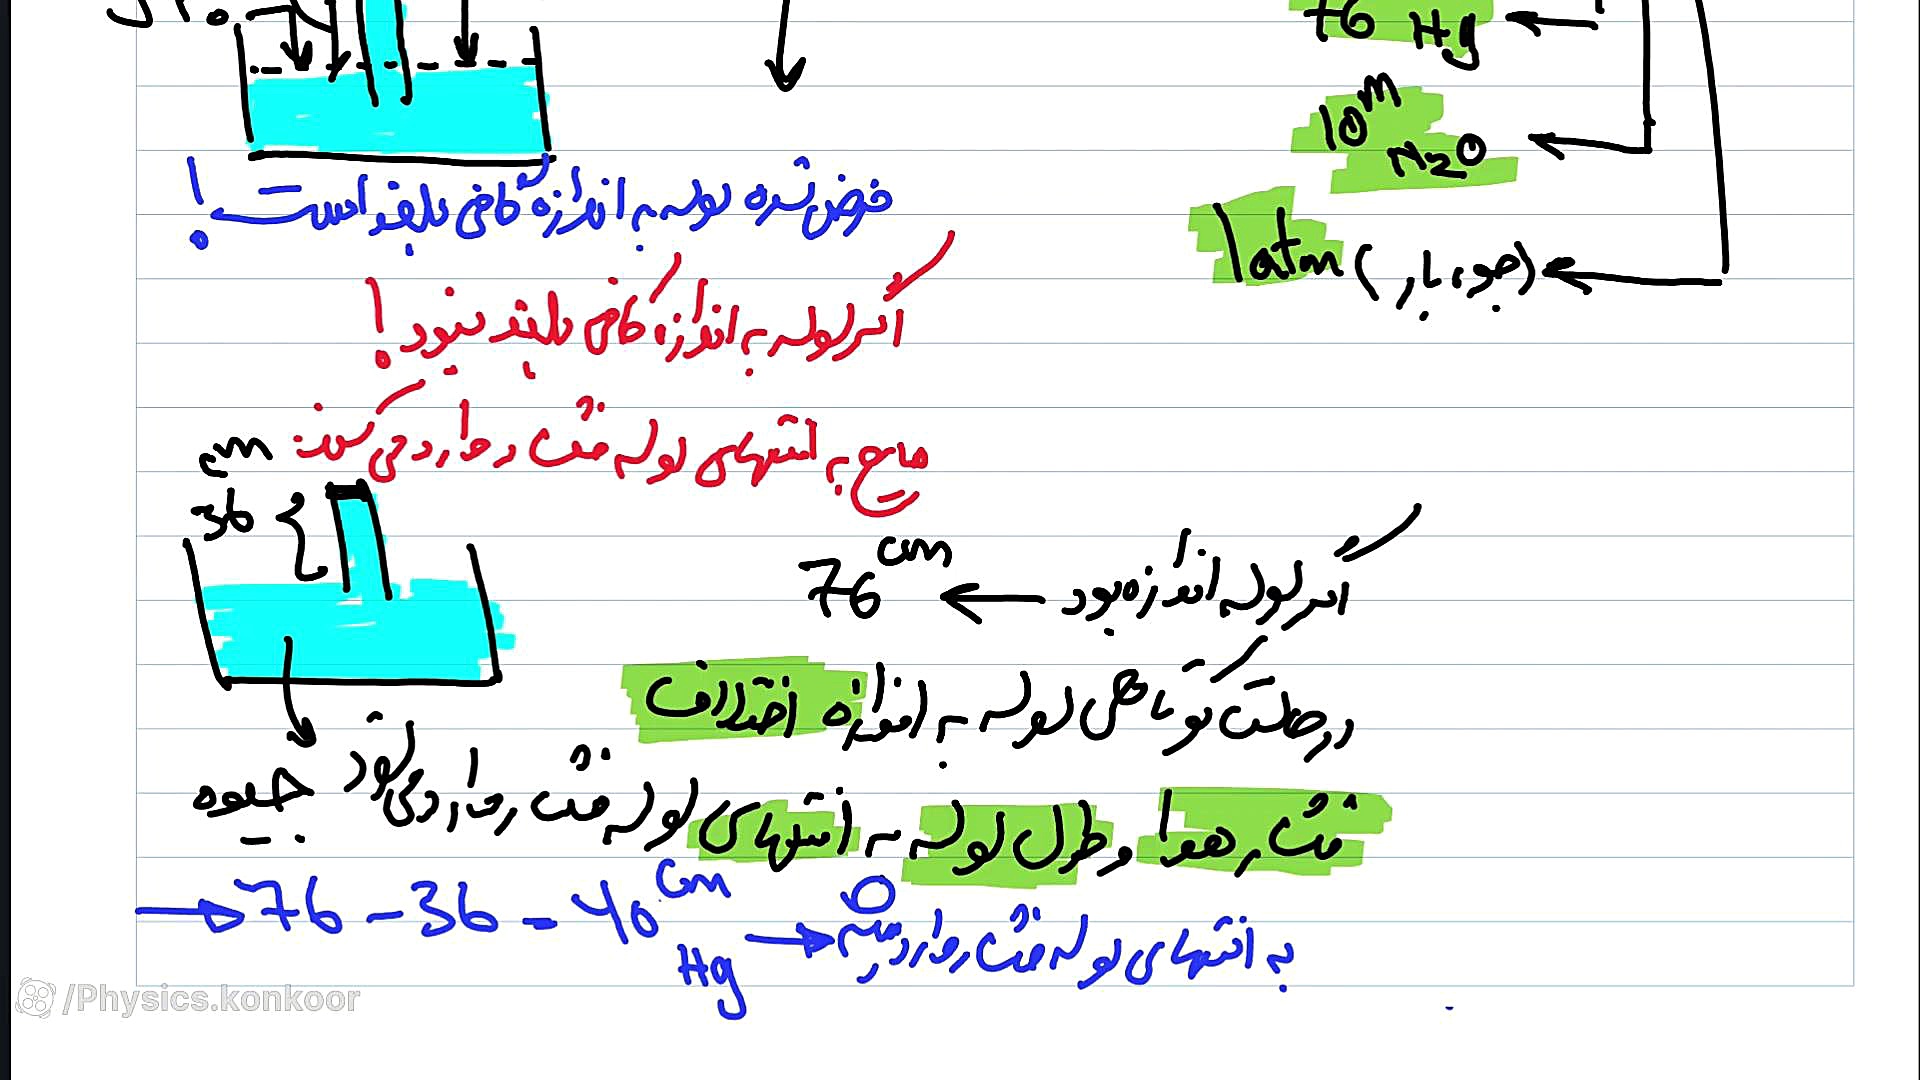 76 Hg
10m
N2O
1atm (جو، بار)
فرض شده لوله به اندازه کافی بلند است!
اگر لوله به اندازه کافی بلند نبود!
مایع به انتهای لوله فشار وارد می کند:
cm
36
اگر لوله اندازه بود ← 76 cm
در حالت کوتاهی لوله به اندازه اختلاف
فشار هوا و طول لوله به انتهای لوله فشار وارد می شود
جیوه
→ 76 - 36 = 40 cm Hg → به انتهای لوله فشار وارد
/Physics.konkoor